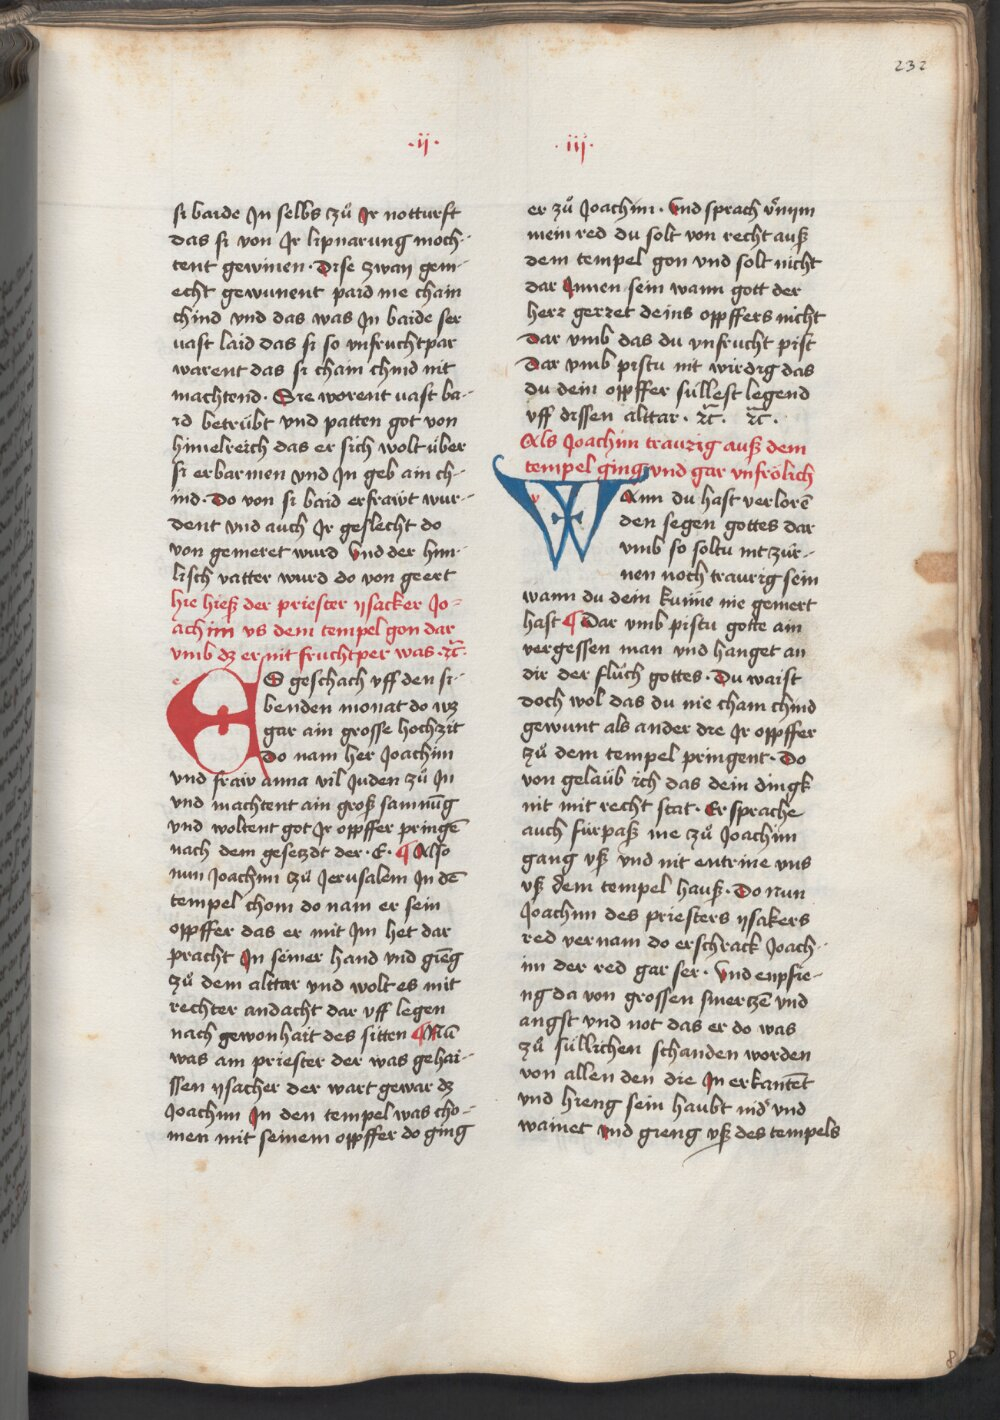 232
·ij·
si baide Jn selbs zuͦ Jr notturft
das si von Jr lipnarung moch-
tent gewinen · Dise zway gem-
echt gewunent paid nie chain
chind vnd das was Jn baide ser
vast laid das si so vnfruchtpar
warent das si chain chind nit
machtend · Sie worent vast ba-
id betruͤbt vnd patten got von
himelreich das er sich wolt uͤber
si erbarmen vnd Jn geb ain ch-
ind · Do von si baid erfraiwt wur-
dent vnd auch Jr geslecht do
von gemeret wurd vnd der him-
lisch vatter wurd do von geert
hie hieß der priester ysacker Jo-
achim vs dem tempel gon dar
vmb dz er nit fruchtper was · ꝛc̃
e
ES geschach vff den si-
benden monat do wz
gar ain grosse hochzit
Do nam her Joachim
vnd fraw anna vil Juden zuͦ Jn
vnd machtent ain groß samnũg
vnd woltent got Jr opffer pringẽ
nach dem gesetzdt der · E · ¶ Also
nun Joachim zuͦ Jerusalem Jn dẽ
tempel chom do nam er sein
opffer das er mit Jm het dar
pracht Jn seiner hand vnd gieng
zuͦ dem alttar vnd wolt es mit
rechter andacht dar vff legen
nach gewonhait des sitten ¶ Nũ
was am priester der was gehai-
ssen ysacher der wart gewar dz
Joachim Jn den tempel was cho-
men mit seinem opffer do ging
·iij·
er zuͦ Joachim · Vnd sprach vͦnym
mein red du solt von recht auß
dem tempel gon vnd solt nicht
dar Jnnen sein wann gott der
herr gerret deins opffers nicht
Dar vmb das du vnfrucht pist
Dar vmb pistu nit wirdig das
du dein opffer suͤllest legend
vff dissen alttar · ꝛc̃ · ꝛc̃ ·
Als Joachim traurig auß dem
tempel ging vnd gar vnfroͤlich
w
WAnn du hast verlorẽ
den segen gottes dar
vmb so soltu nit zuͤr-
nen noch traurig sein
wann du dein kunne nie gemert
hast ¶ Dar vmb pistu gotte ain
vergessen man vnd hanget an
dir der fluͦch gottes · Du waist
doch wol das du nie cham chind
gewunt als ander die Jr opffer
zuͦ dem tempel pringent · Do
von gelaub ich das dein dingk
nit mit recht stat · Er sprache
auch fuͤrpaß me zuͦ Joachim
gang vß vnd nit entrine vns
vß dem tempel hauß · Do nun
Joachim des priesters ysakers
red vernam do erschrack Joach-
im der red gar ser · Vnd enpfie-
ng da von grossen smertzẽ vnd
angst vnd not das er do was
zuͦ suͤllichen schanden worden
von allen den die Jn erkantẽt
vnd hieng sein haubt nid vnd
wainet vnd gieng vß des tempels